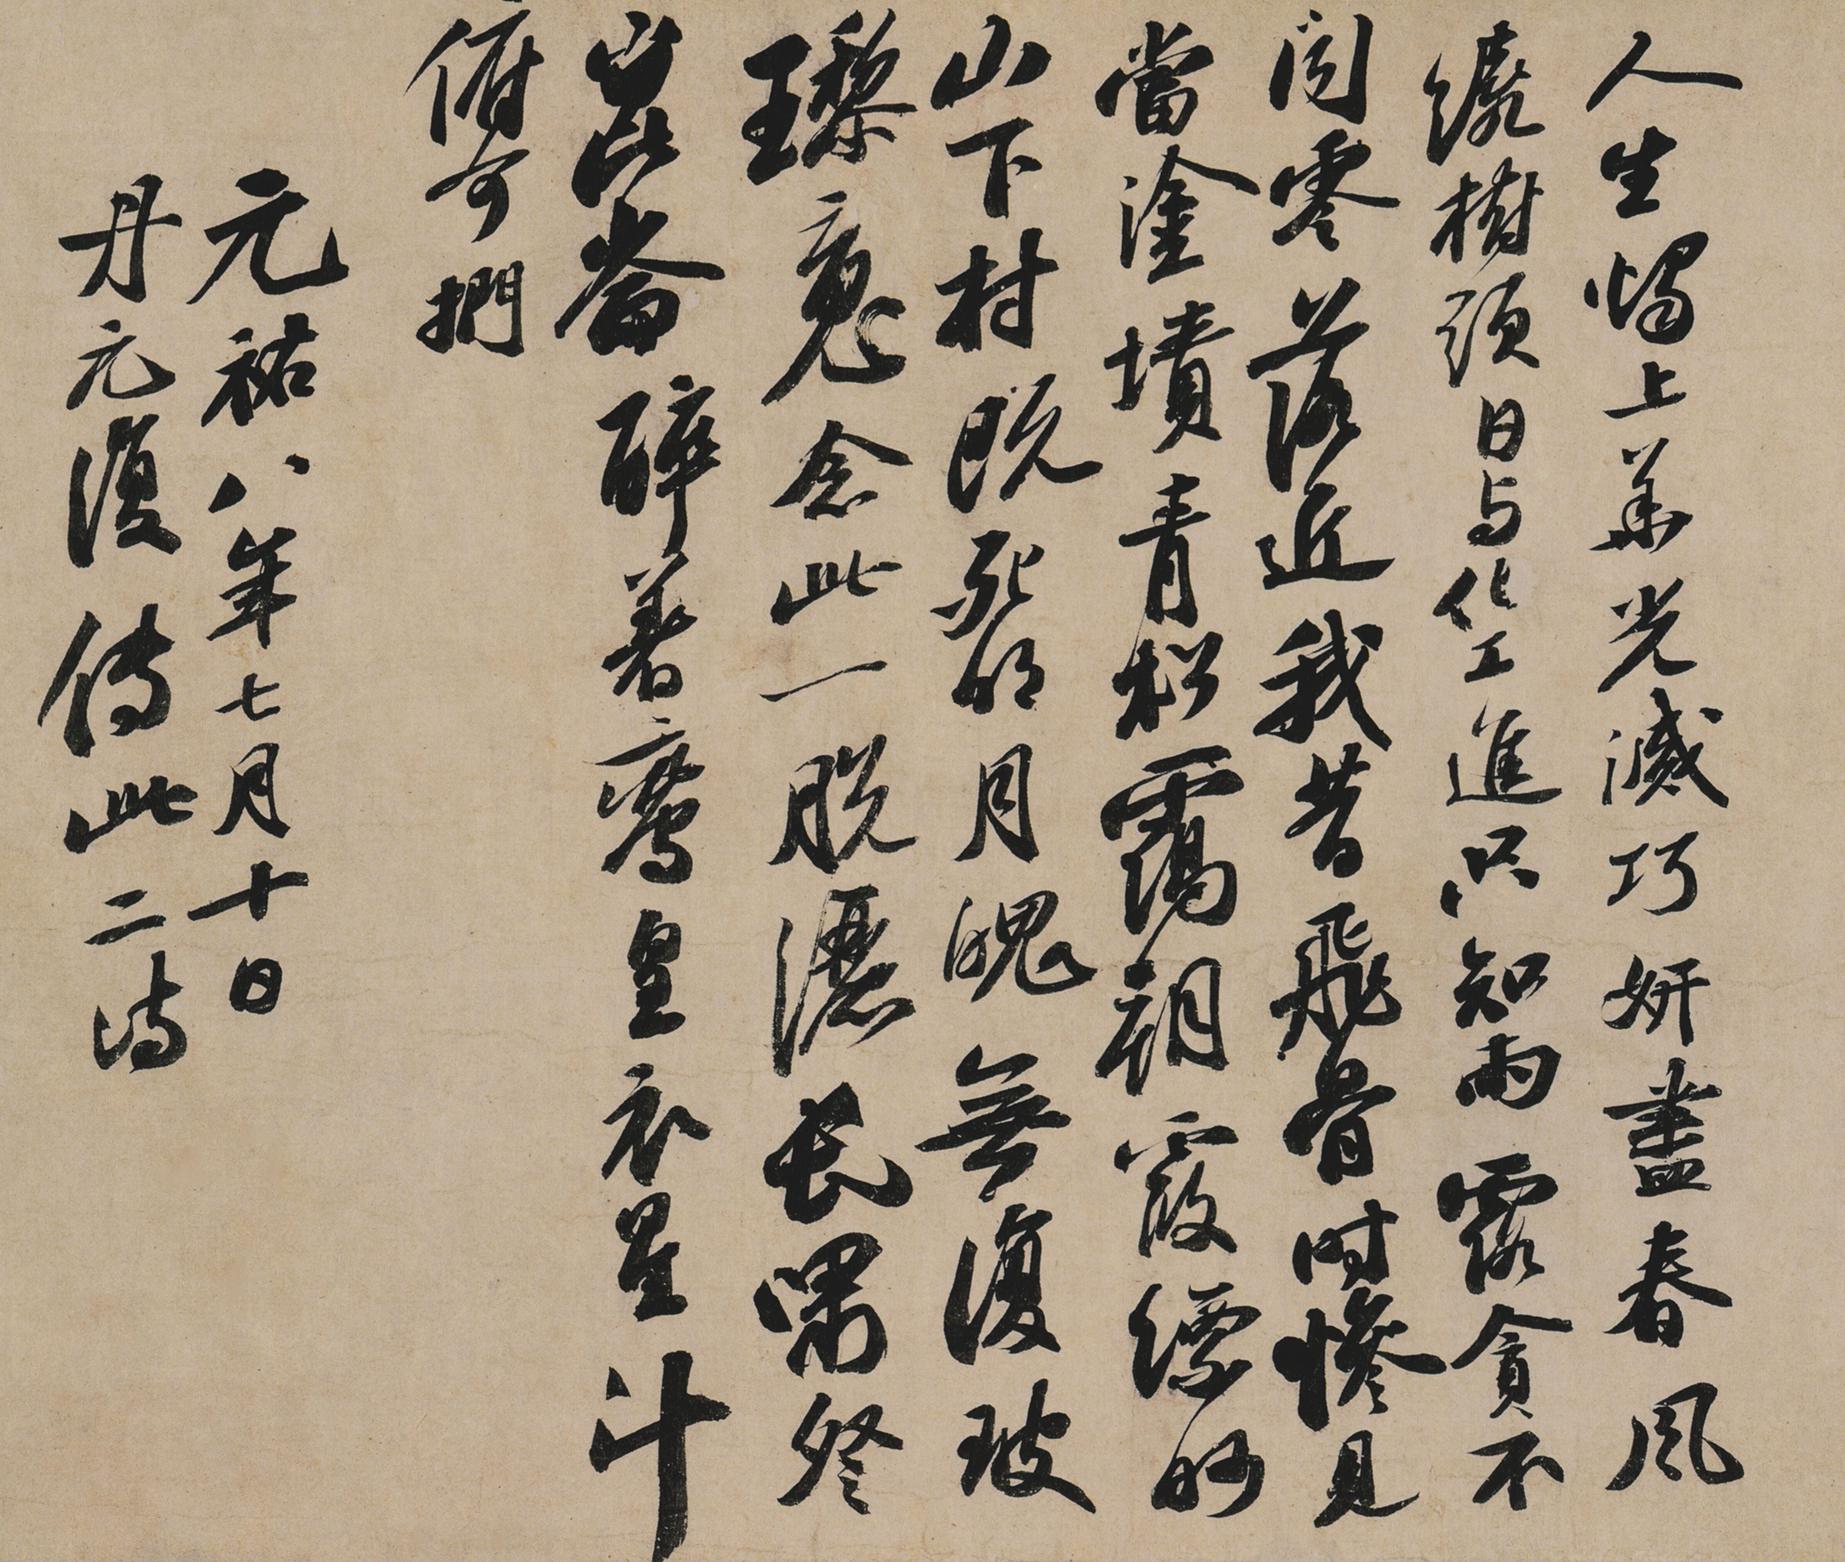 人生燭上華光滅巧妍盡春風
繞樹頭日与化工進只知雨露貪不
聞零落近我昔飛骨時慘見
當塗墳青松靄朝霞縹眇
山下村既死明月魄無復玻
瓈魂念此一脫灑長嘯祭
崑崙醉著鸞皇衣星斗
俯可捫
元祐八年七月十日
丹元復傳此二詩